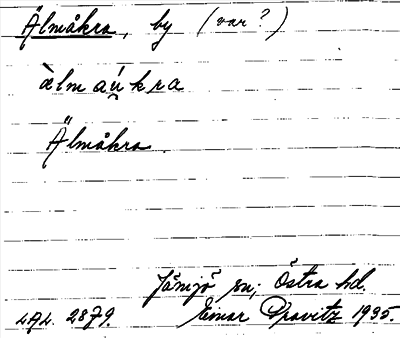 Älmåkra, by (var?)
àlm aú̯kra
Älmåkra.
Jämjö sn; Östra hd.
LAL. 2879. Einar Pravitz 1935.